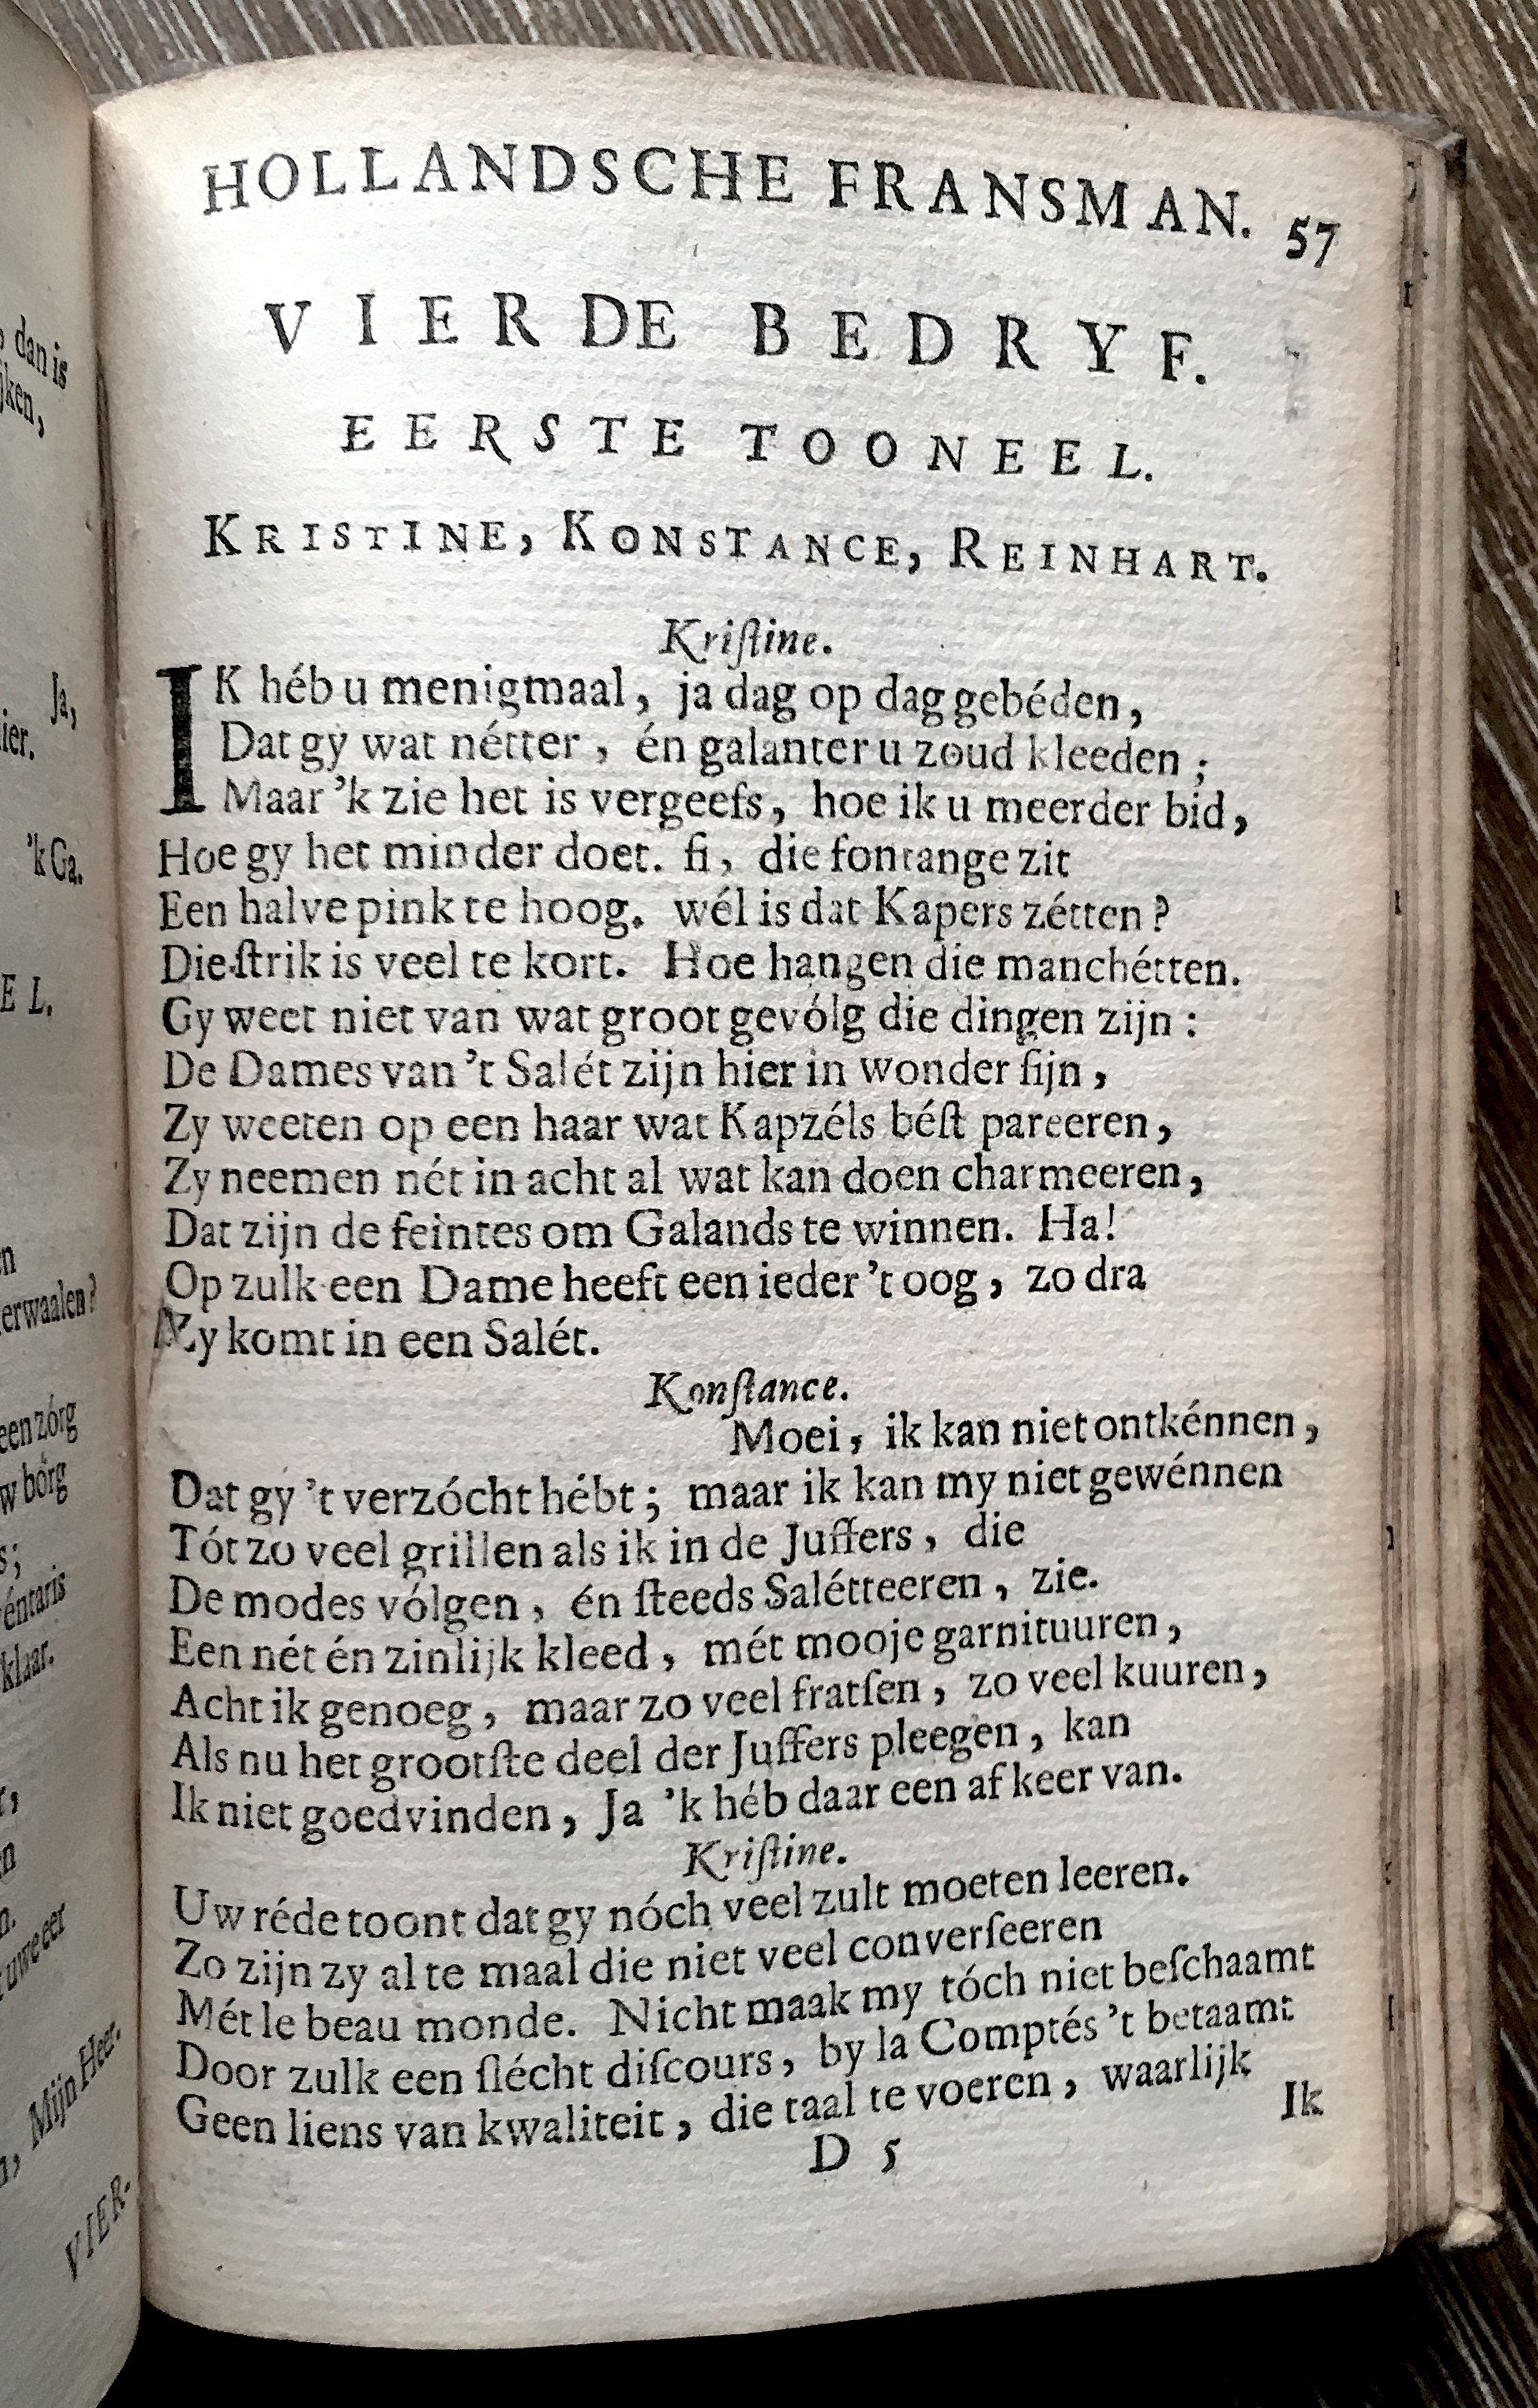 dan is
jken,
Ja,
ier.
'k Ga.
E L.
n
erwaalen?
een zórg
w bórg
s;
éntaris
klaar.
n
n.
uwe eer
Mijn Heer.
VIER-
HOLLANDSCHE FRANSMAN. 57
VIERDE BEDRYF.
EERSTE TOONEEL.
KRISTINE, KONSTANCE, REINHART.
Kriſtine.
IK héb u menigmaal, ja dag op dag gebéden,
Dat gy wat nétter, én galanter u zoud kleeden;
Maar 'k zie het is vergeefs, hoe ik u meerder bid,
Hoe gy het minder doet. fi, die fontange zit
Een halve pink te hoog. wél is dat Kapers zétten?
Die ſtrik is veel te kort. Hoe hangen die manchétten.
Gy weet niet van wat groot gevólg die dingen zijn:
De Dames van 't Salét zijn hier in wonder fijn,
Zy weeten op een haar wat Kapzéls béſt pareeren,
Zy neemen nét in acht al wat kan doen charmeeren,
Dat zijn de feintes om Galands te winnen. Ha!
Op zulk een Dame heeft een ieder 't oog, zo dra
Zy komt in een Salét.
Konſtance.
Moei, ik kan niet ontkénnen,
Dat gy 't verzócht hébt; maar ik kan my niet gewénnen
Tót zo veel grillen als ik in de Juffers, die
De modes vólgen, én ſteeds Salétteeren, zie.
Een nét én zinlijk kleed, mét mooje garnituuren,
Acht ik genoeg, maar zo veel fratſen, zo veel kuuren,
Als nu het grootſte deel der Juffers pleegen, kan
Ik niet goedvinden, Ja 'k héb daar een afkeer van.
Kriſtine.
Uw réde toont dat gy nóch veel zult moeten leeren.
Zo zijn zy al te maal die niet veel converſeeren
Mét le beau monde. Nicht maak my tóch niet beſchaamt
Door zulk een ſlécht diſcours, by la Comptés 't betaamt
Geen liens van kwaliteit, die taal te voeren, waarlijk
D 5
Ik